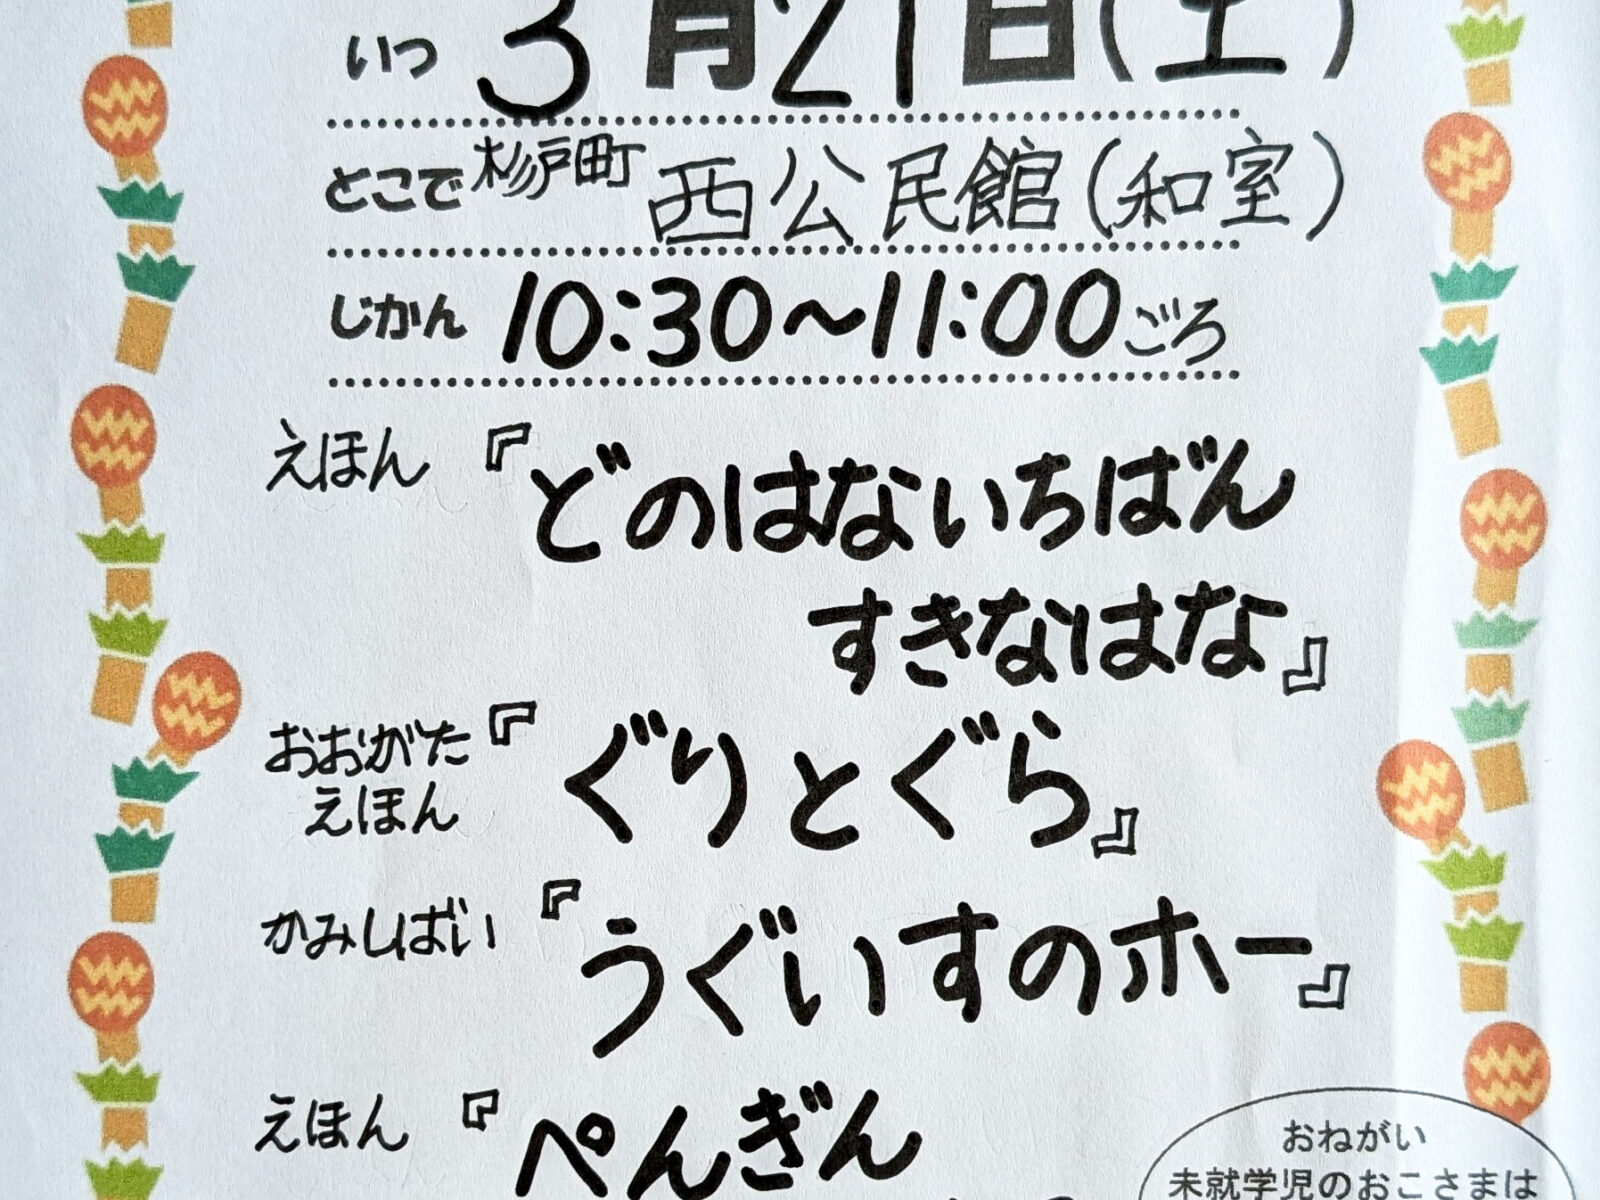 いつ 3月21日(土)
どこで 杉戸町 西公民館(和室)
じかん 10:30～11:00ごろ
えほん 『どのはないちばん
すきなはな』
おおがた
えほん 『ぐりとぐら』
かみしばい 『うぐいすのホー』
えほん 『ぺんぎん
おねがい
未就学児のおこさまは